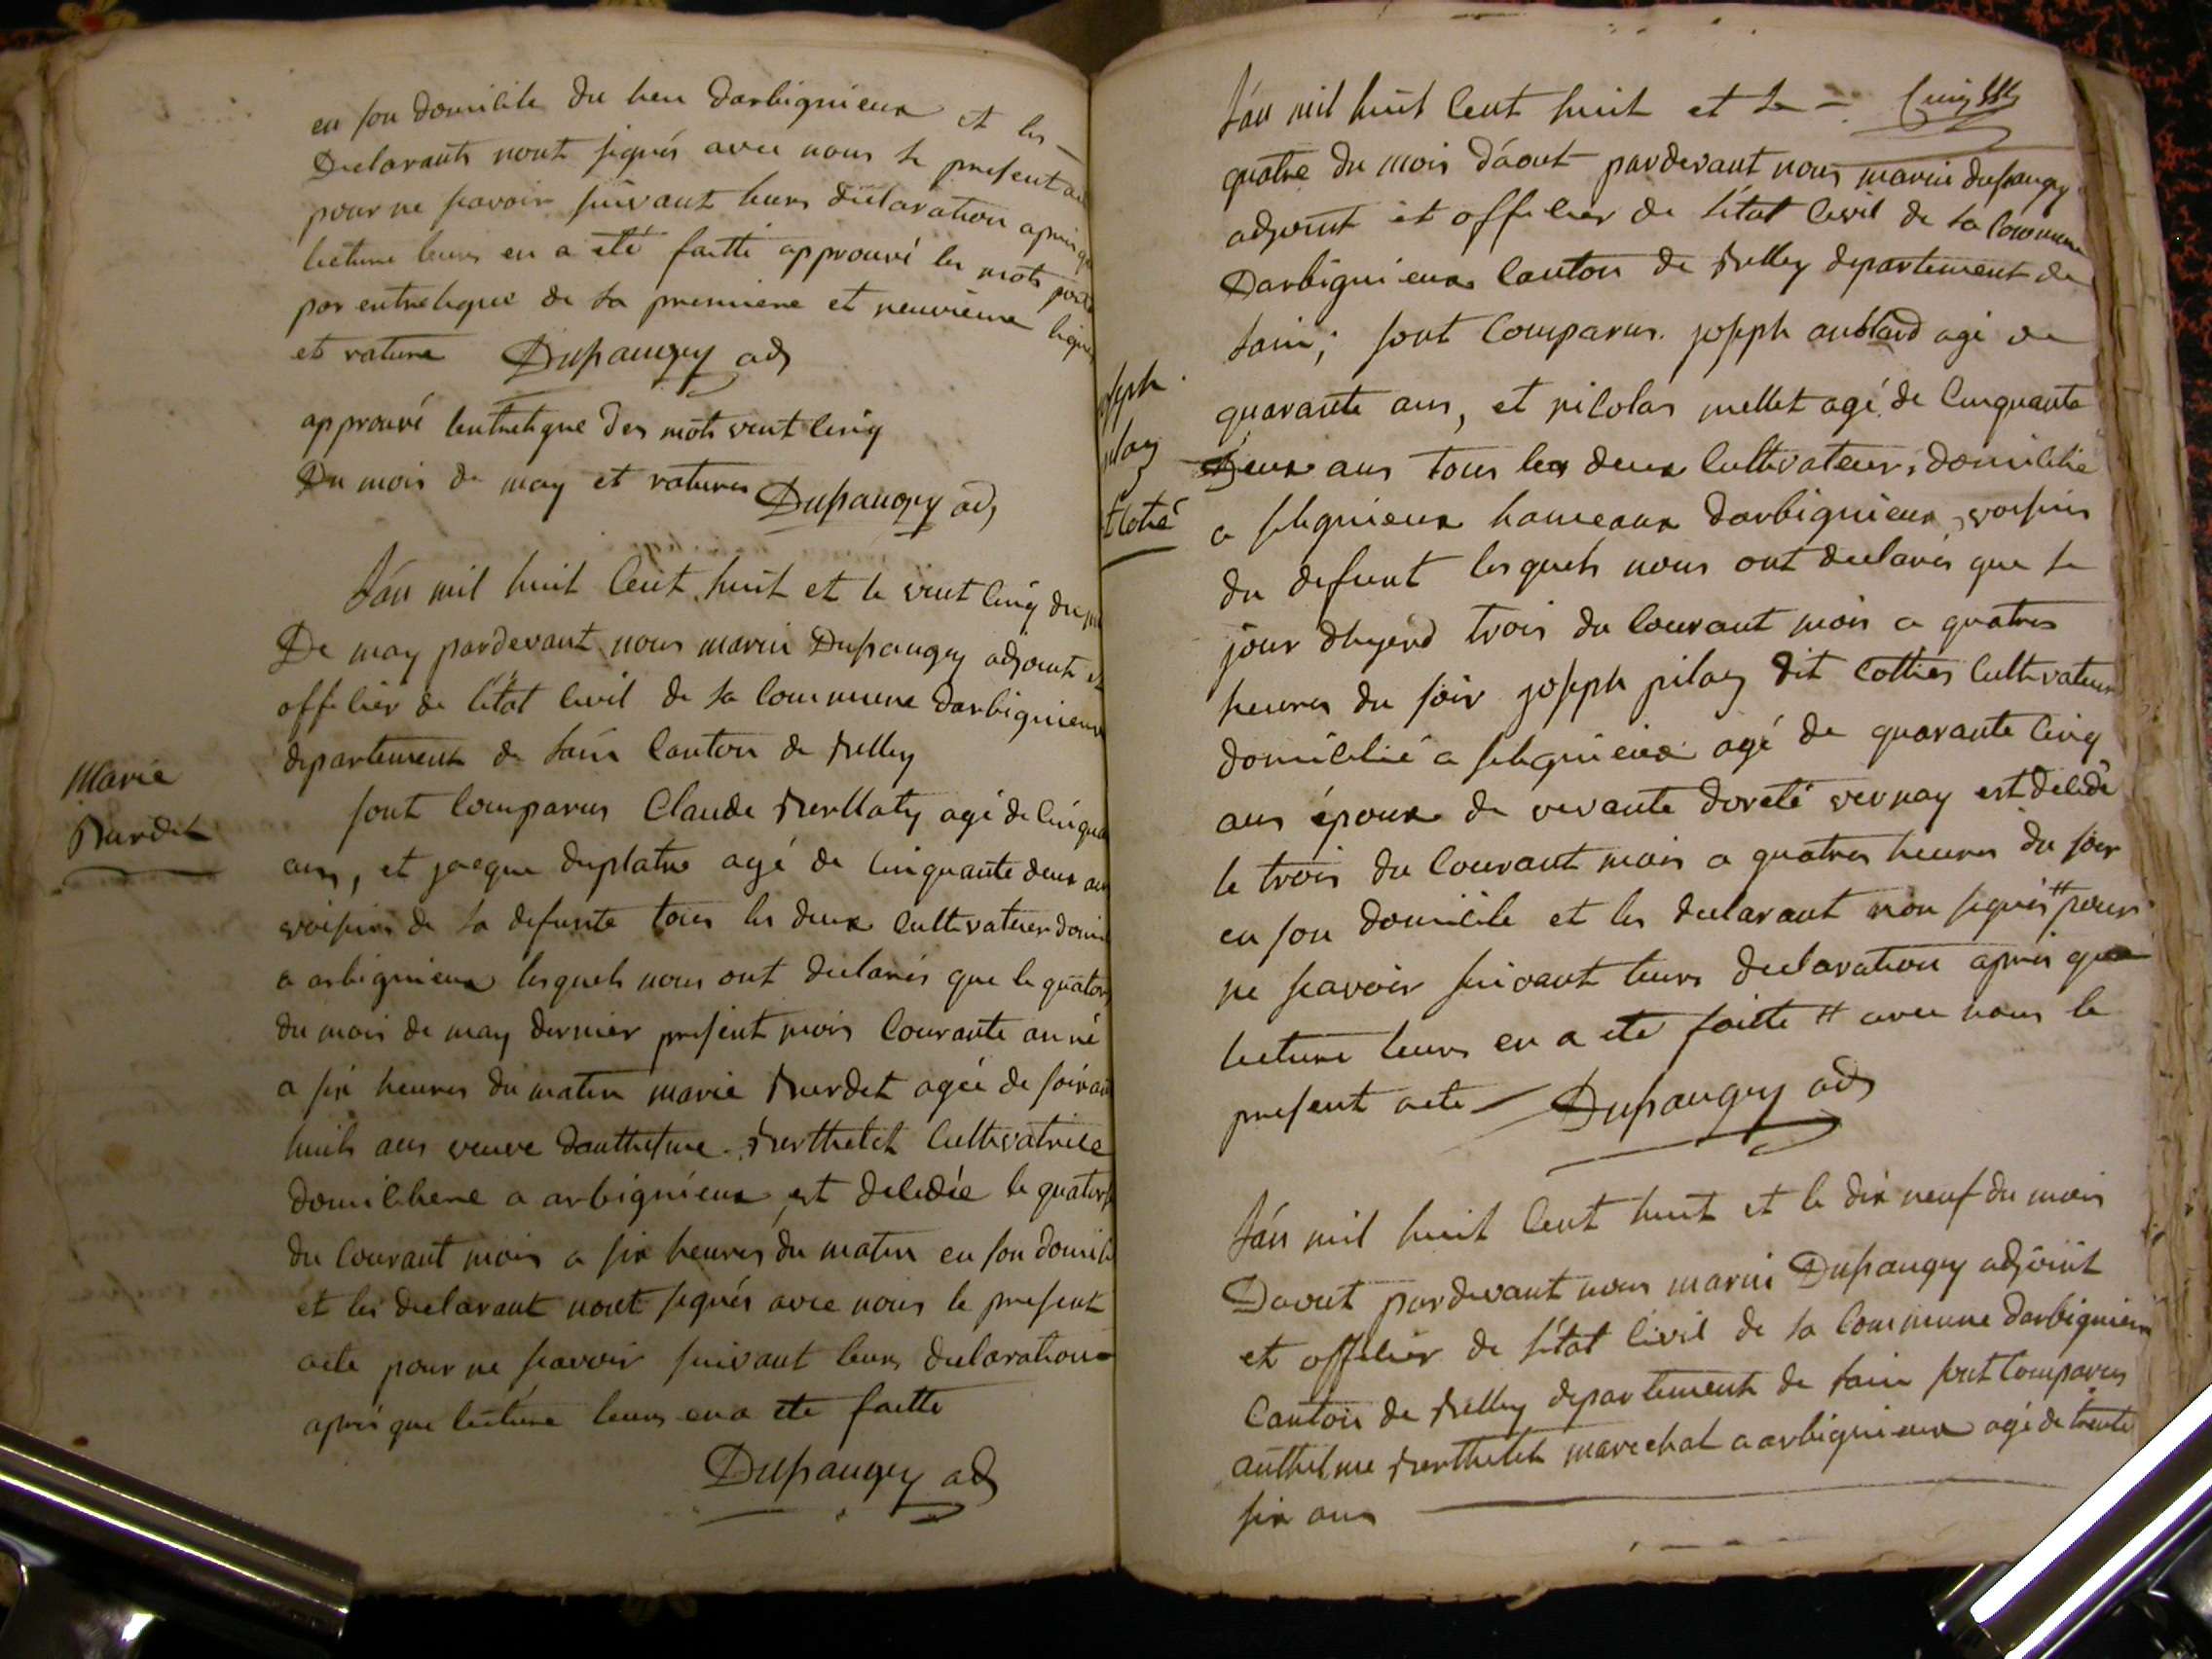 en son domicile du lieu darbignieux et les
Declarants nont signés avec nous le present
pour ne scavoir suivant leurs déclaration apres
lecture leurs en a été faitte approuvé les mots
par entreligne de la premiere et neuvieme ligne
et rature Dupaugey adj
approuvé lentreligne des mots vent cinq
Du mois de may et ratures Dupaugey adj
Lán mil huit cent huit et le vent cinq du
De may pardevant nous marin Dupaugey adjoint et
officier de létat civil de la commune darbignieux
departement de lain canton de Belley
Marie
Burdet
sont comparus Claude agé de
ans, et jacque duplatre agé de cinquante deux ans
voisins de la defunte tous les deux cultivateur
a arbignieux lesquels nous ont declarés que le
du mois de may dernier present mois courante anné
a six heures du matin marie Burdet agée de
huits ans veuve danthelme Berthelet cultivatrice
domiciliere a arbignieux est decedée le
du courant mois a six heures du matin en son
et les declarant nont signés avec nous le present
acte pour ne scavoir suivant leurs declaration
aprés que lecture leurs en a ete faitte
Dupaugey adj
Lán mil huit cent huit et le
quatre du mois dáout pardevant nous marin dupaugey
adjoint et officier de létat civil de la commune
Darbignieux canton de Belley departement de
lain; sont comparus joseph agé de
quarante ans, et nicolas mellet agé de cinquante
deux ans tous les deux cultivateurs domicilié
a slignieux hameaux darbignieux voisins
du defunt lesquels nous ont declarés que le
jour dhyerd trois du courant mois a quatres
heures du soir joseph pilaz dit cottier cultivateur
domicilié a slignieux agé de quarante cinq
ans époux de vevante doreté vernay est décédé
le trois du courant mois a quatres heures du soir
en son domicile et les declarant non signés # pour
ne scavoir suivant leurs declaration aprés que
lecture leurs en a ete faitte # avec nous le
present acte Dupaugey adj
Lán mil huit cent huit et le dix neuf du mois
Daout pardevant nous marin Dupaugey adjoint
et officier de létat civil de la commune darbignieux
canton de Belley departement de lain sont comparus
anthelme Berthelet marechal a arbignieux agé de trente
six ans